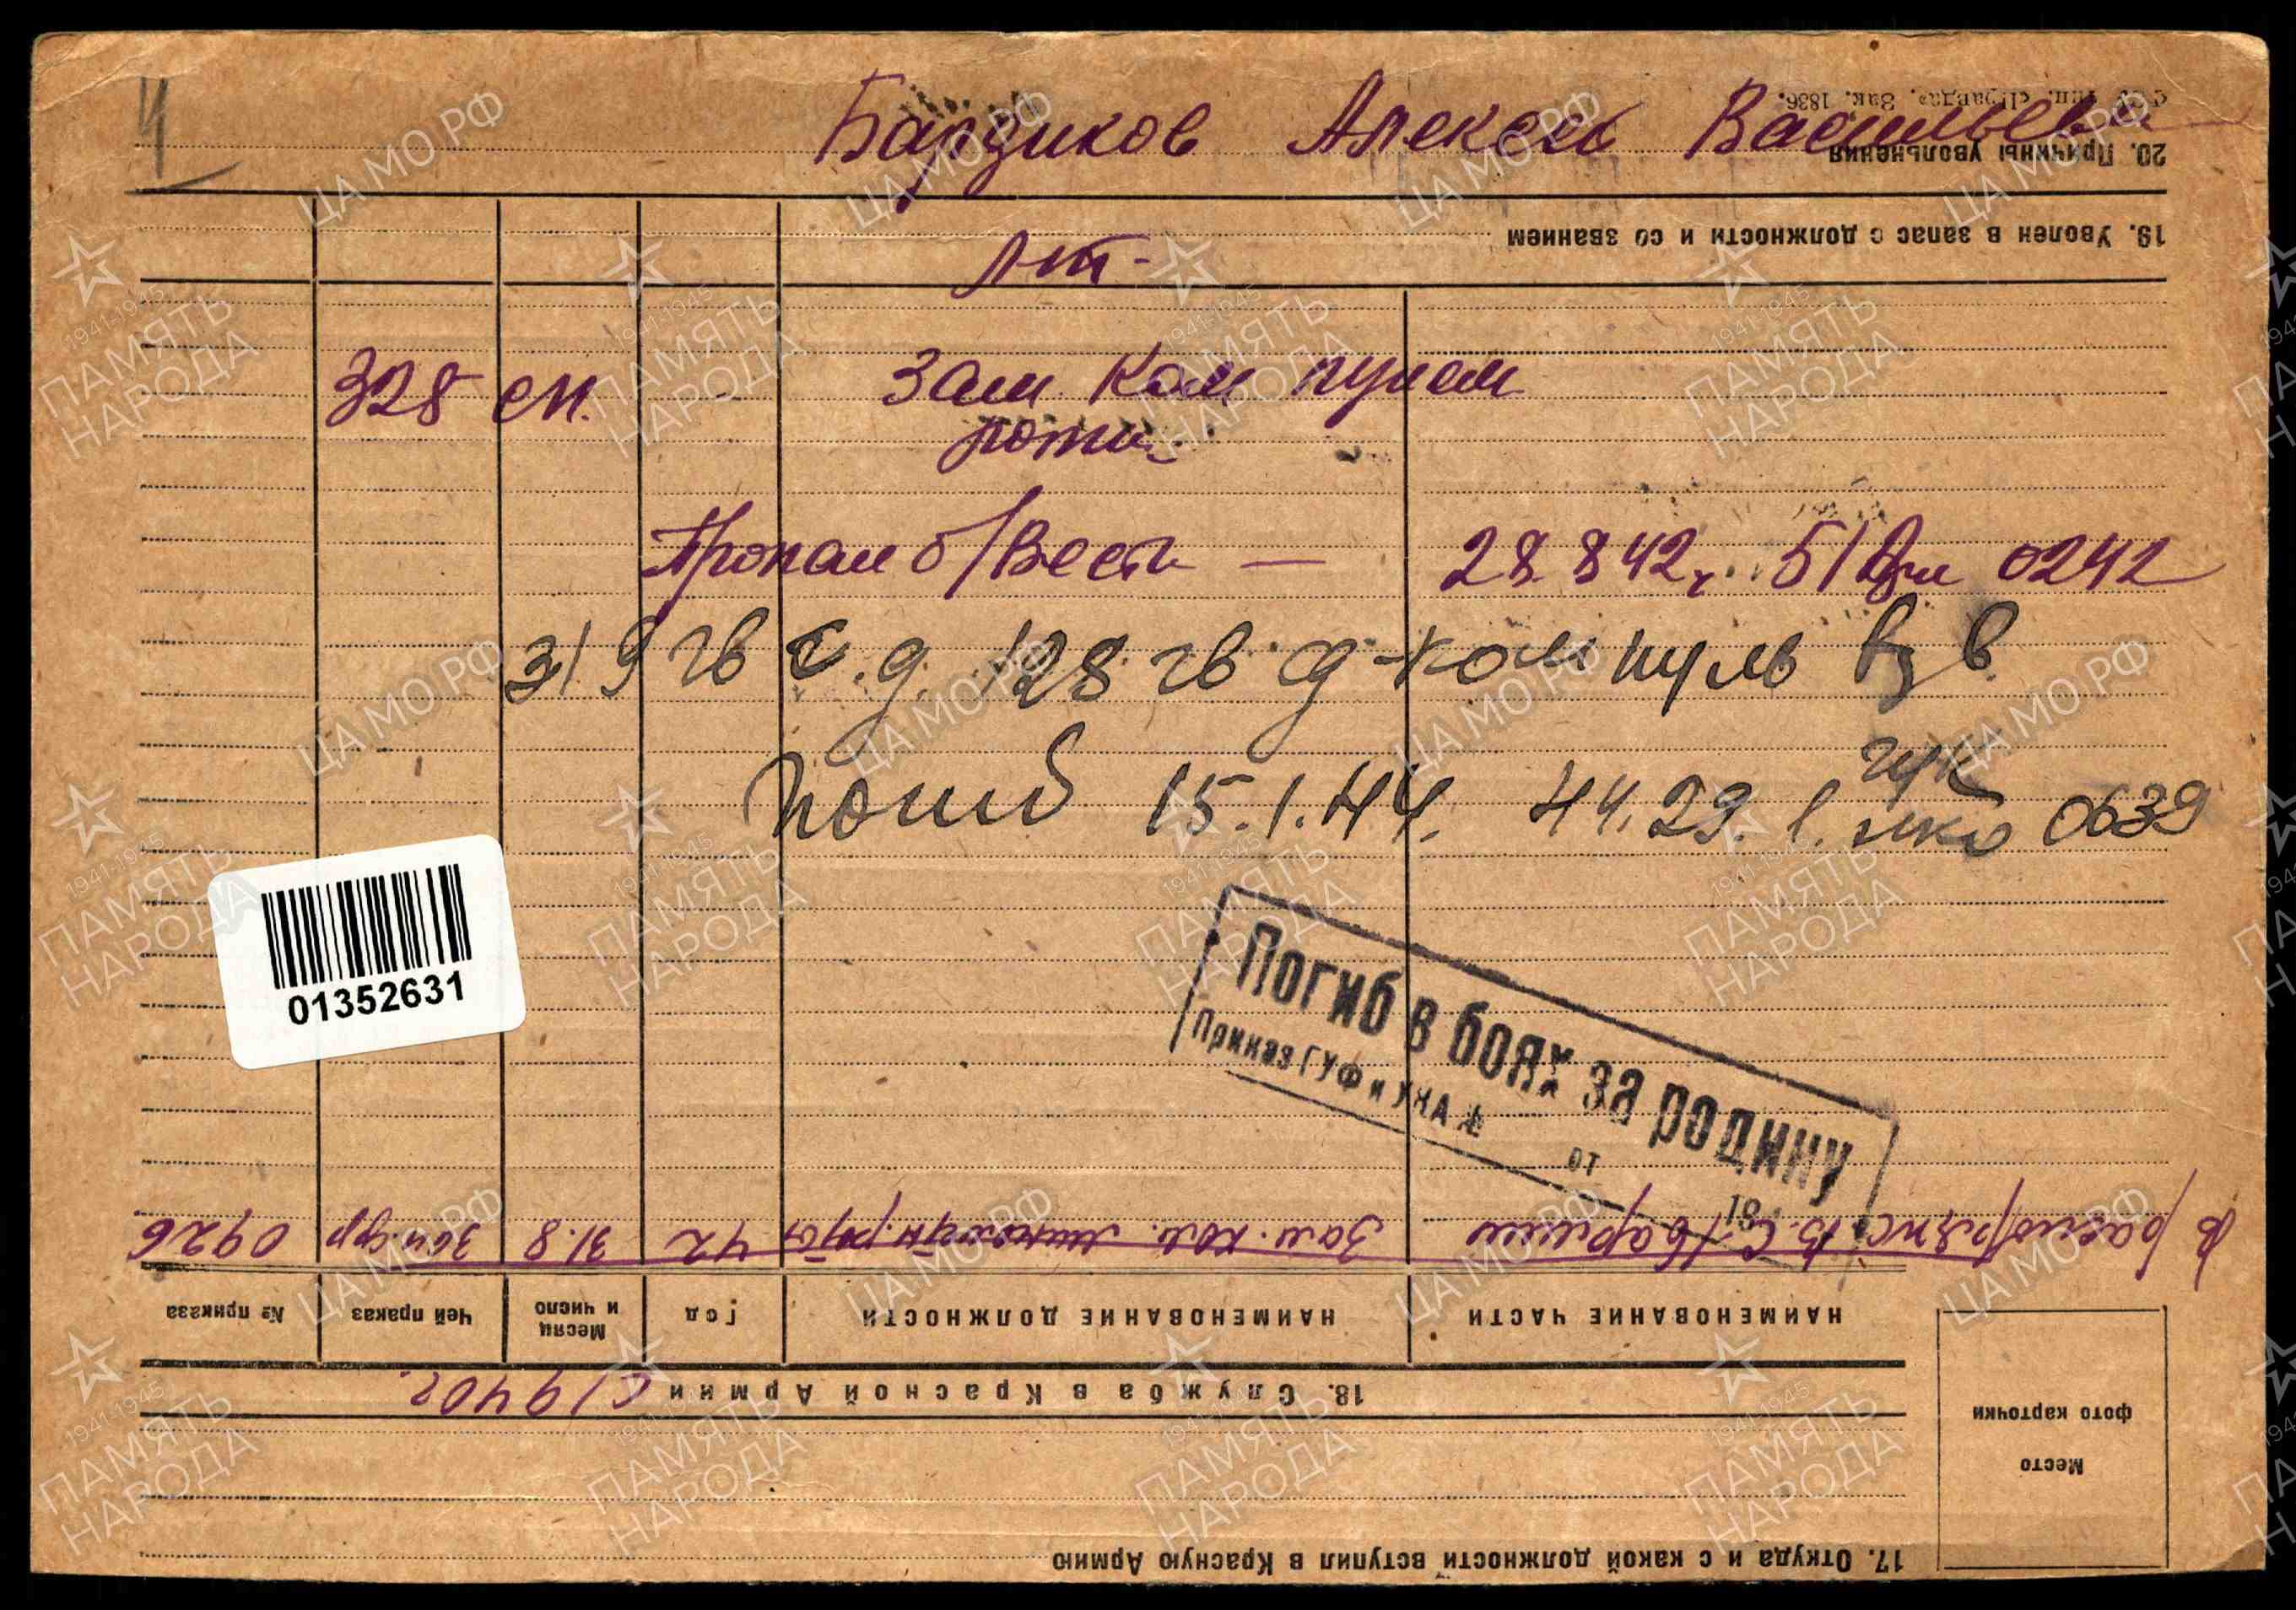 4
Бардиков Алексей Васильеви
лт-
328 сп. зам ком пулем
роты
Пропал б/вести — 28.8.42г. 51/Дми 0242
319 гв с.д. 128 гв сд-ком пуль взв.
Погиб 15.1.44. 44.29.1. гук нко 0639
01352631
Погиб в боях за родину
Приказ ГУФ и УКА №
от 194
20. Причины увольнения
19. Уволен в запас с должности и со званием
тип. «Правда». Зак. 1836.
17. Откуда и с какой должности вступил в Красную Армию
Место
фото карточки
18. Служба в Красной Армии с 1940г.
НАИМЕНОВАНИЕ ЧАСТИ НАИМЕНОВАНИЕ ДОЛЖНОСТИ Год Месяц и число Чей приказ № приказа
В распоряж В.С. армии Зам. ком. роты 42 31.8 0926
ЦА МО РФ
1941-1945
ПАМЯТЬ
НАРОДА